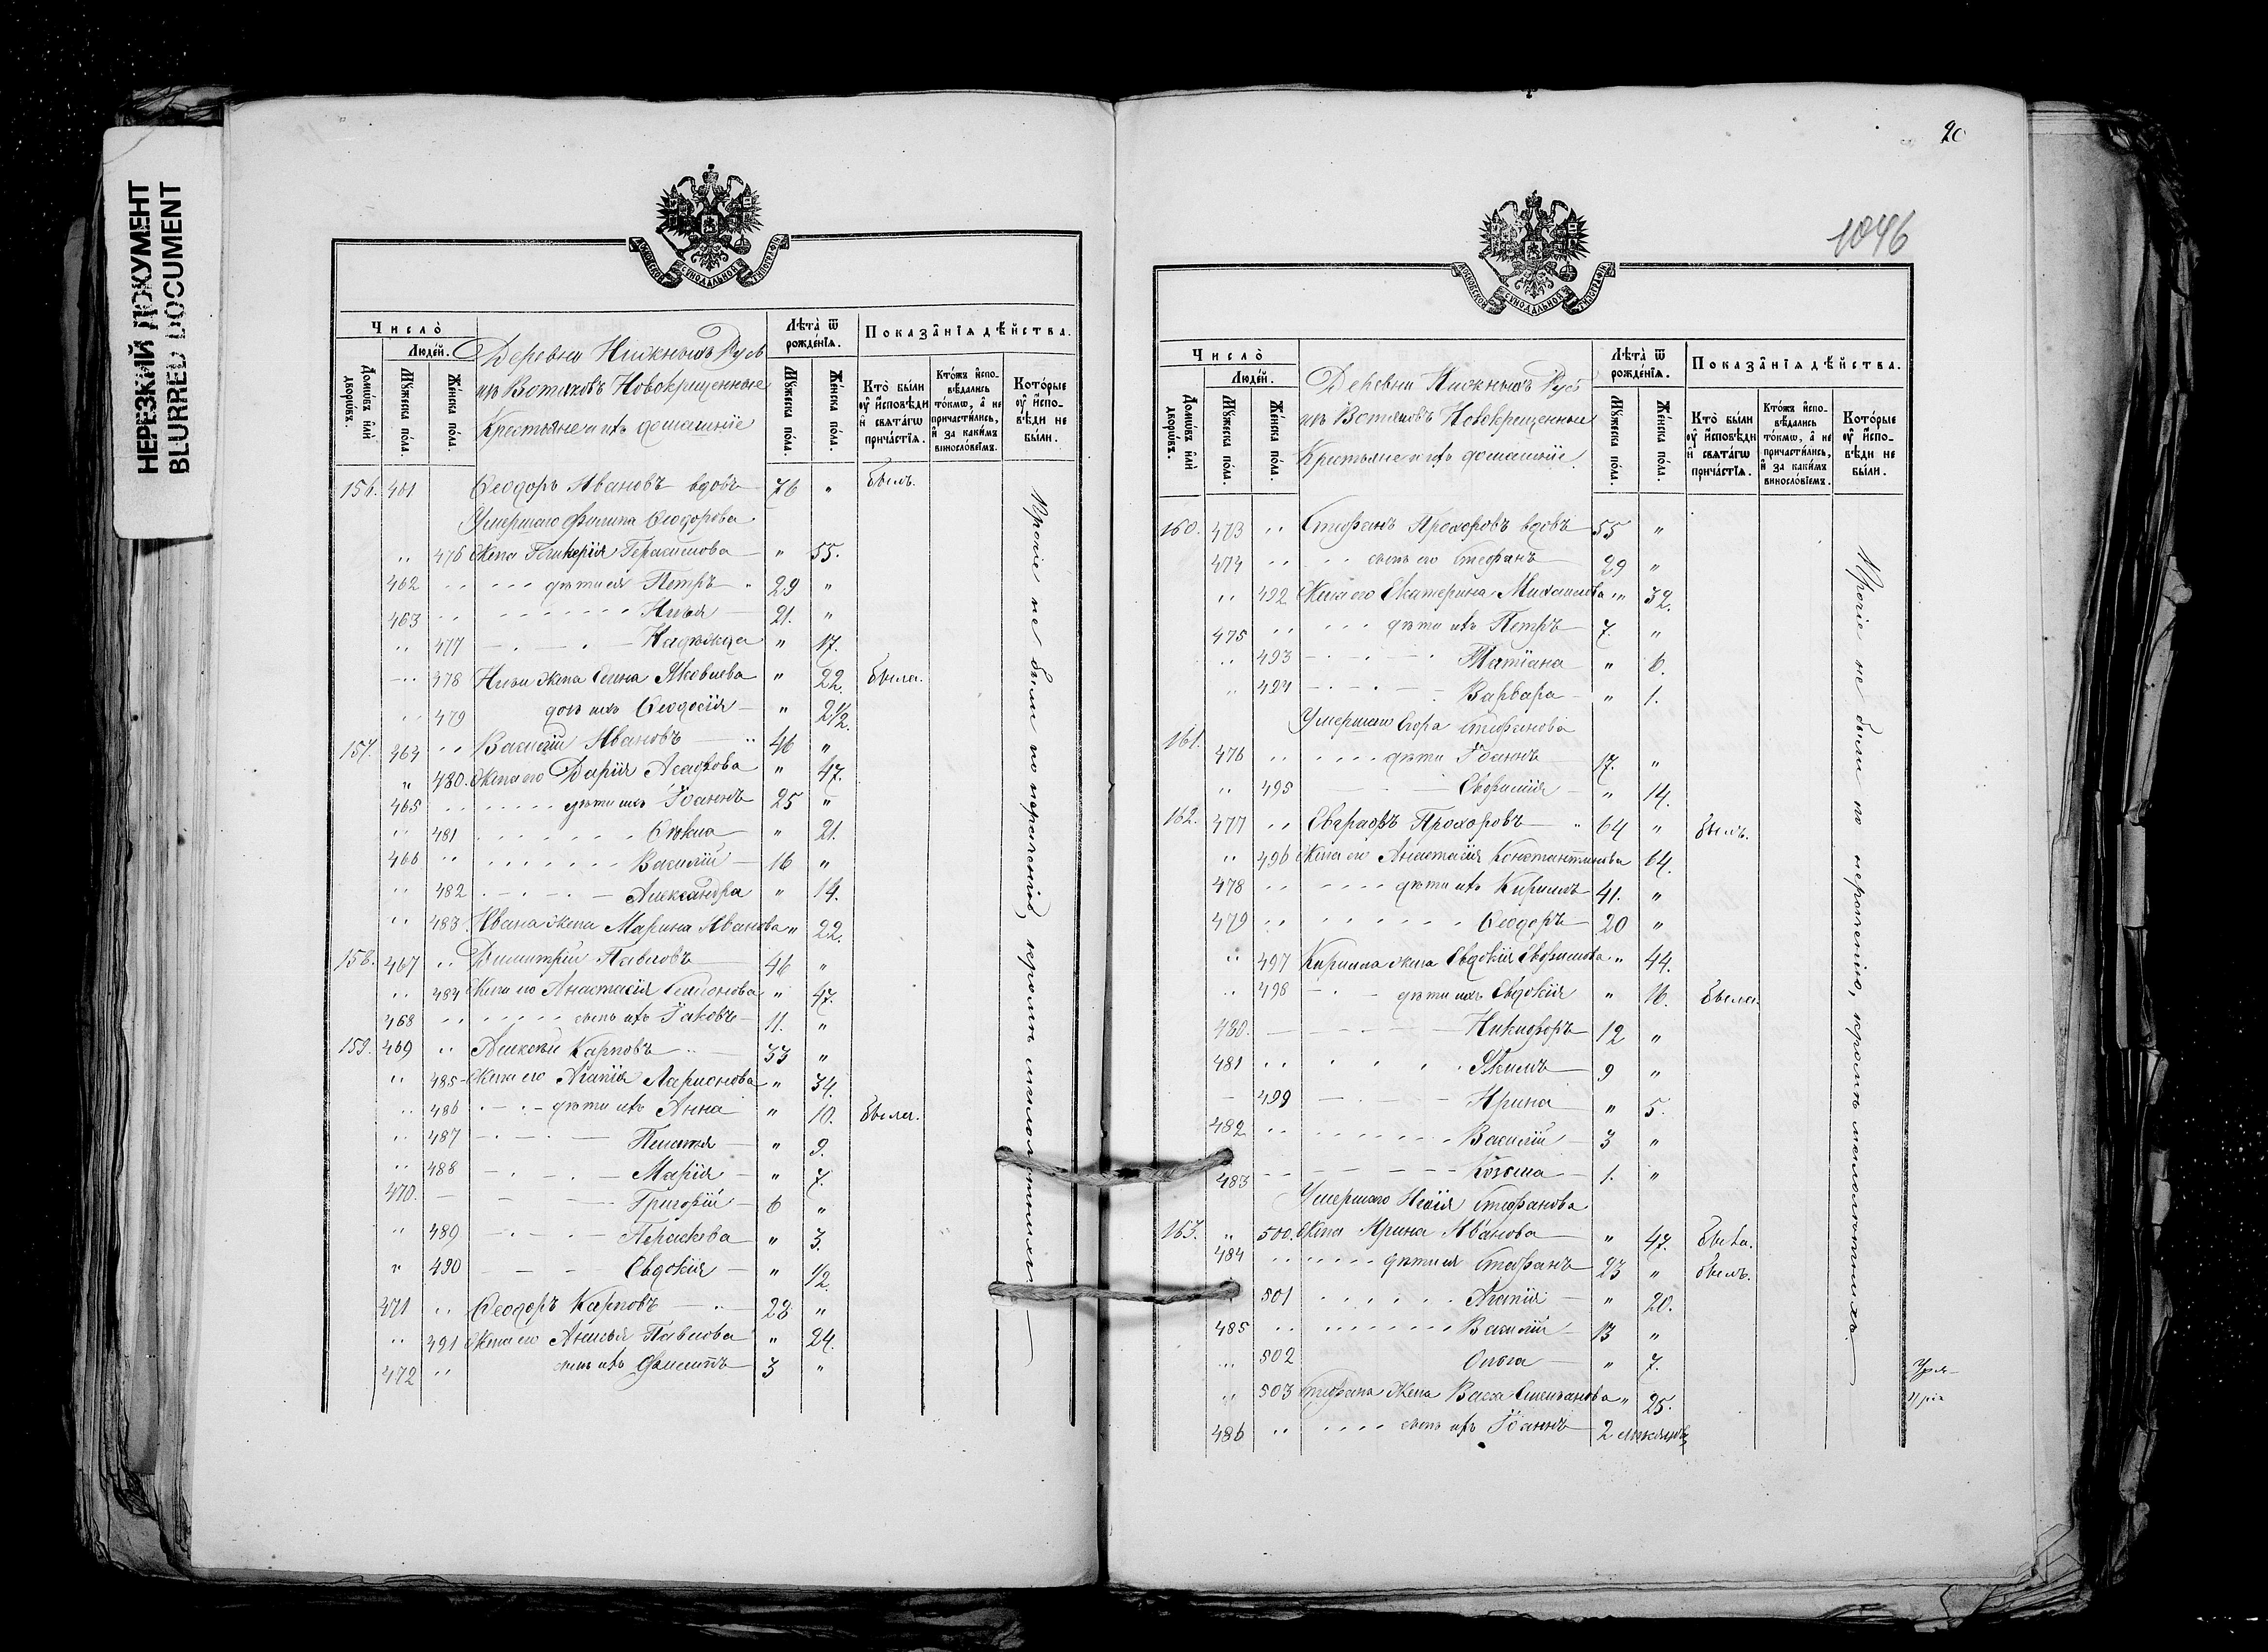 НЕРЕЗКИЙ ДОКУМЕНТ
BLURRED DOCUMENT
МОСКОВСКОЙ СѴНОДАЛЬНОЙ ТИПОГРАФІИ
Число̀
Люде́й.
Домѡ́въ и҆лѝ дворѡ́въ.
Мꙋ́жеска по́ла.
Же́нска по́ла.
Деревни Нижнихъ Русь
изъ Вотяковъ Новокрещенные
Крестьяне и ихъ домашніе
Лѣ́та ѿ рожде́нїѧ.
Мꙋ́жеска по́ла.
Же́нска по́ла.
Показа̑нїѧ дѣ́йства.
Кто̀ бы́ли оу҆ и҆спо́вѣди и҆ свѧта́гѡ прича́стїѧ.
Кто́жъ и҆спо-вѣ́дались то́кмѡ, а҆ не причасти́лись, и҆ за каки́мъ винословїемъ.
Кото́рые оу҆ и҆спо-вѣди не бы́ли.
156. 461 Ѳеодоръ Ивановъ вдовъ 76 " былъ.
Умершаго Филипа Ѳеодорова
" 476 Жена Гликерія Герасимова " 55.
462 " дѣти ея Петръ 29 "
463 " Илья 21. "
" 477 Надежда " 17.
" 478 Ильи жена Елена Яковлева " 22. была.
" 479 дочь ихъ Ѳеодосія " 2 1/2.
157. 464 " Василій Ивановъ 46 "
" 480. Жена его Дарія Асафова " 47.
465 " дѣти ихъ Іоаннъ 25 "
" 481 Ѳекла " 21.
466 " Василій 16 "
" 482 Александра " 14.
" 483. Ивана жена Марина Иванова " 22.
158. 467 " Димитрій Павловъ 46 "
" 484 Жена его Анастасія Симонова " 47.
468 " сынъ ихъ Іаковъ 11. "
159. 469 " Алексѣй Карповъ 33 "
" 485 Жена его Агапія Ларионова " 34.
" 486 дѣти ихъ Анна " 10. была.
" 487 Пелагея " 9.
" 488 Марія " 7.
470. Григорій 6 "
" 489 Параскева " 3.
" 490 Евдокія " 1/2.
471 " Ѳеодоръ Карповъ 28 "
" 491 Жена его Анисья Павлова " 24.
472 " сынъ ихъ Филиппъ 3 "
Прочіе не были по нераченію, кромѣ малолѣтнихъ.
20
1046
МОСКОВСКОЙ СѴНОДАЛЬНОЙ ТИПОГРАФІИ
Число̀
Люде́й.
Домѡ́въ и҆лѝ дворѡ́въ.
Мꙋ́жеска по́ла.
Же́нска по́ла.
Деревни Нижнихъ Русь
изъ Вотяковъ Новокрещенные
Крестьяне и ихъ домашніе.
Лѣ́та ѿ рожде́нїѧ.
Мꙋ́жеска по́ла.
Же́нска по́ла.
Показа̑нїѧ дѣ́йства.
Кто̀ бы́ли оу҆ и҆спо́вѣди и҆ свѧта́гѡ прича́стїѧ.
Кто́жъ и҆спо-вѣ́дались то́кмѡ, а҆ не причасти́лись, и҆ за каки́мъ винословїемъ.
Кото́рые оу҆ и҆спо-вѣди не бы́ли.
160. 473 " Стефанъ Прохоровъ вдовъ 55 "
474 " сынъ его Стефанъ 29 "
" 492 Жена его Екатерина Михаилова " 32.
475 " дѣти ихъ Петръ 7. "
" 493 Татіана " 6.
" 494 Варвара " 1.
Умершаго Егора Стефанова
161. 476 " дѣти Іоаннъ 17. "
" 495 Евфимія " 14.
162. 477 " Евграфъ Прохоровъ 64 " былъ.
" 496 Жена его Анастасія Константинова 64.
478 " дѣти ихъ Кириллъ 41. "
479 " Ѳеодоръ 20 "
" 497 Кирилла жена Евдокія Евфимова " 44.
" 498 дѣти ихъ Евдокія " 16. была.
480. Никифоръ 12 "
481 " Якимъ 9 "
499 Ирина " 5.
482 " Василій 3 "
483 Козьма 1. "
Умершаго Стефанова
163. " 500. Жена Ирина Иванова " 47. была.
484 дѣти ея Стефанъ 23 " былъ.
501 Агапія " 20.
485 " Василій 13 "
" 502 Ольга " 7.
" 503 Стефана жена Васса " 25.
486 " сынъ ихъ Іоаннъ 2 мѣсяцовъ
Прочіе не были по нераченію, кромѣ малолѣтнихъ.